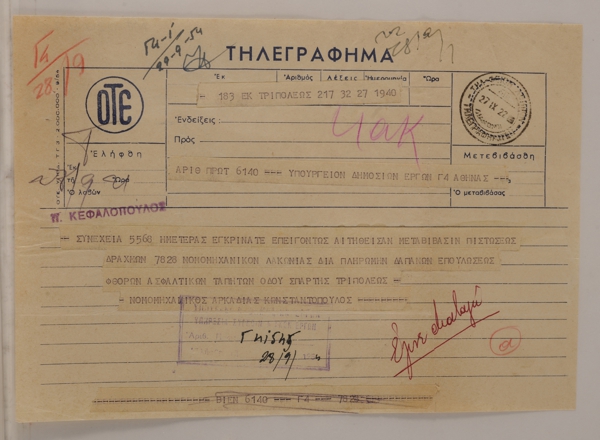 Γ4
28/9
Γ4-1
29-9-54
ΤΗΛΕΓΡΑΦΗΜΑ
ΟΤΕ
Ἐκ Ἀριθμός Λέξεις Ἡμερομηνία Ὥρα
183 ΕΚ ΤΡΙΠΟΛΕΩΣ 217 32 27 1940
Ἐνδείξεις
Πρός
27 IX
Ἐλήφθη
Μετεβιβάσθη
ΑΡΙΘ ΠΡΩΤ 6140 --- ΥΠΟΥΡΓΕΙΟΝ ΔΗΜΟΣΙΩΝ ΕΡΓΩΝ Γ4 ΑΘΗΝΑΣ ---
Ὥρα
Ὁ λαβών
Ὁ μεταβιβάσας
Π. ΚΕΦΑΛΟΠΟΥΛΟΣ
--- ΣΥΝΕΧΕΙΑ 5568 ΗΜΕΤΕΡΑΣ ΕΓΚΡΙΝΑΤΕ ΕΠΕΙΓΟΝΤΩΣ ΑΙΤΗΘΕΙΣΑΝ ΜΕΤΑΒΙΒΑΣΙΝ ΠΙΣΤΩΣΕΩΣ
ΔΡΑΧΜΩΝ 7828 ΝΟΜΟΜΗΧΑΝΙΚΟΝ ΛΑΚΩΝΙΑΣ ΔΙΑ ΠΛΗΡΩΜΗΝ ΔΑΠΑΝΩΝ ΕΠΟΥΛΩΣΕΩΣ
ΦΘΟΡΩΝ ΑΣΦΑΛΤΙΚΩΝ ΤΑΠΗΤΩΝ ΟΔΟΥ ΣΠΑΡΤΗΣ ΤΡΙΠΟΛΕΩΣ ---
- ΝΟΜΟΜΗΧΑΝΙΚΟΣ ΑΡΚΑΔΙΑΣ ΚΩΝΣΤΑΝΤΟΠΟΥΛΟΣ ---
28/9
--- ΒΙΕΝ 6140 --- Γ4 --- 7828 ---